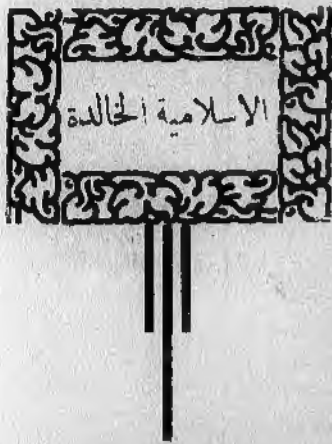 الاسلامية الخالدة